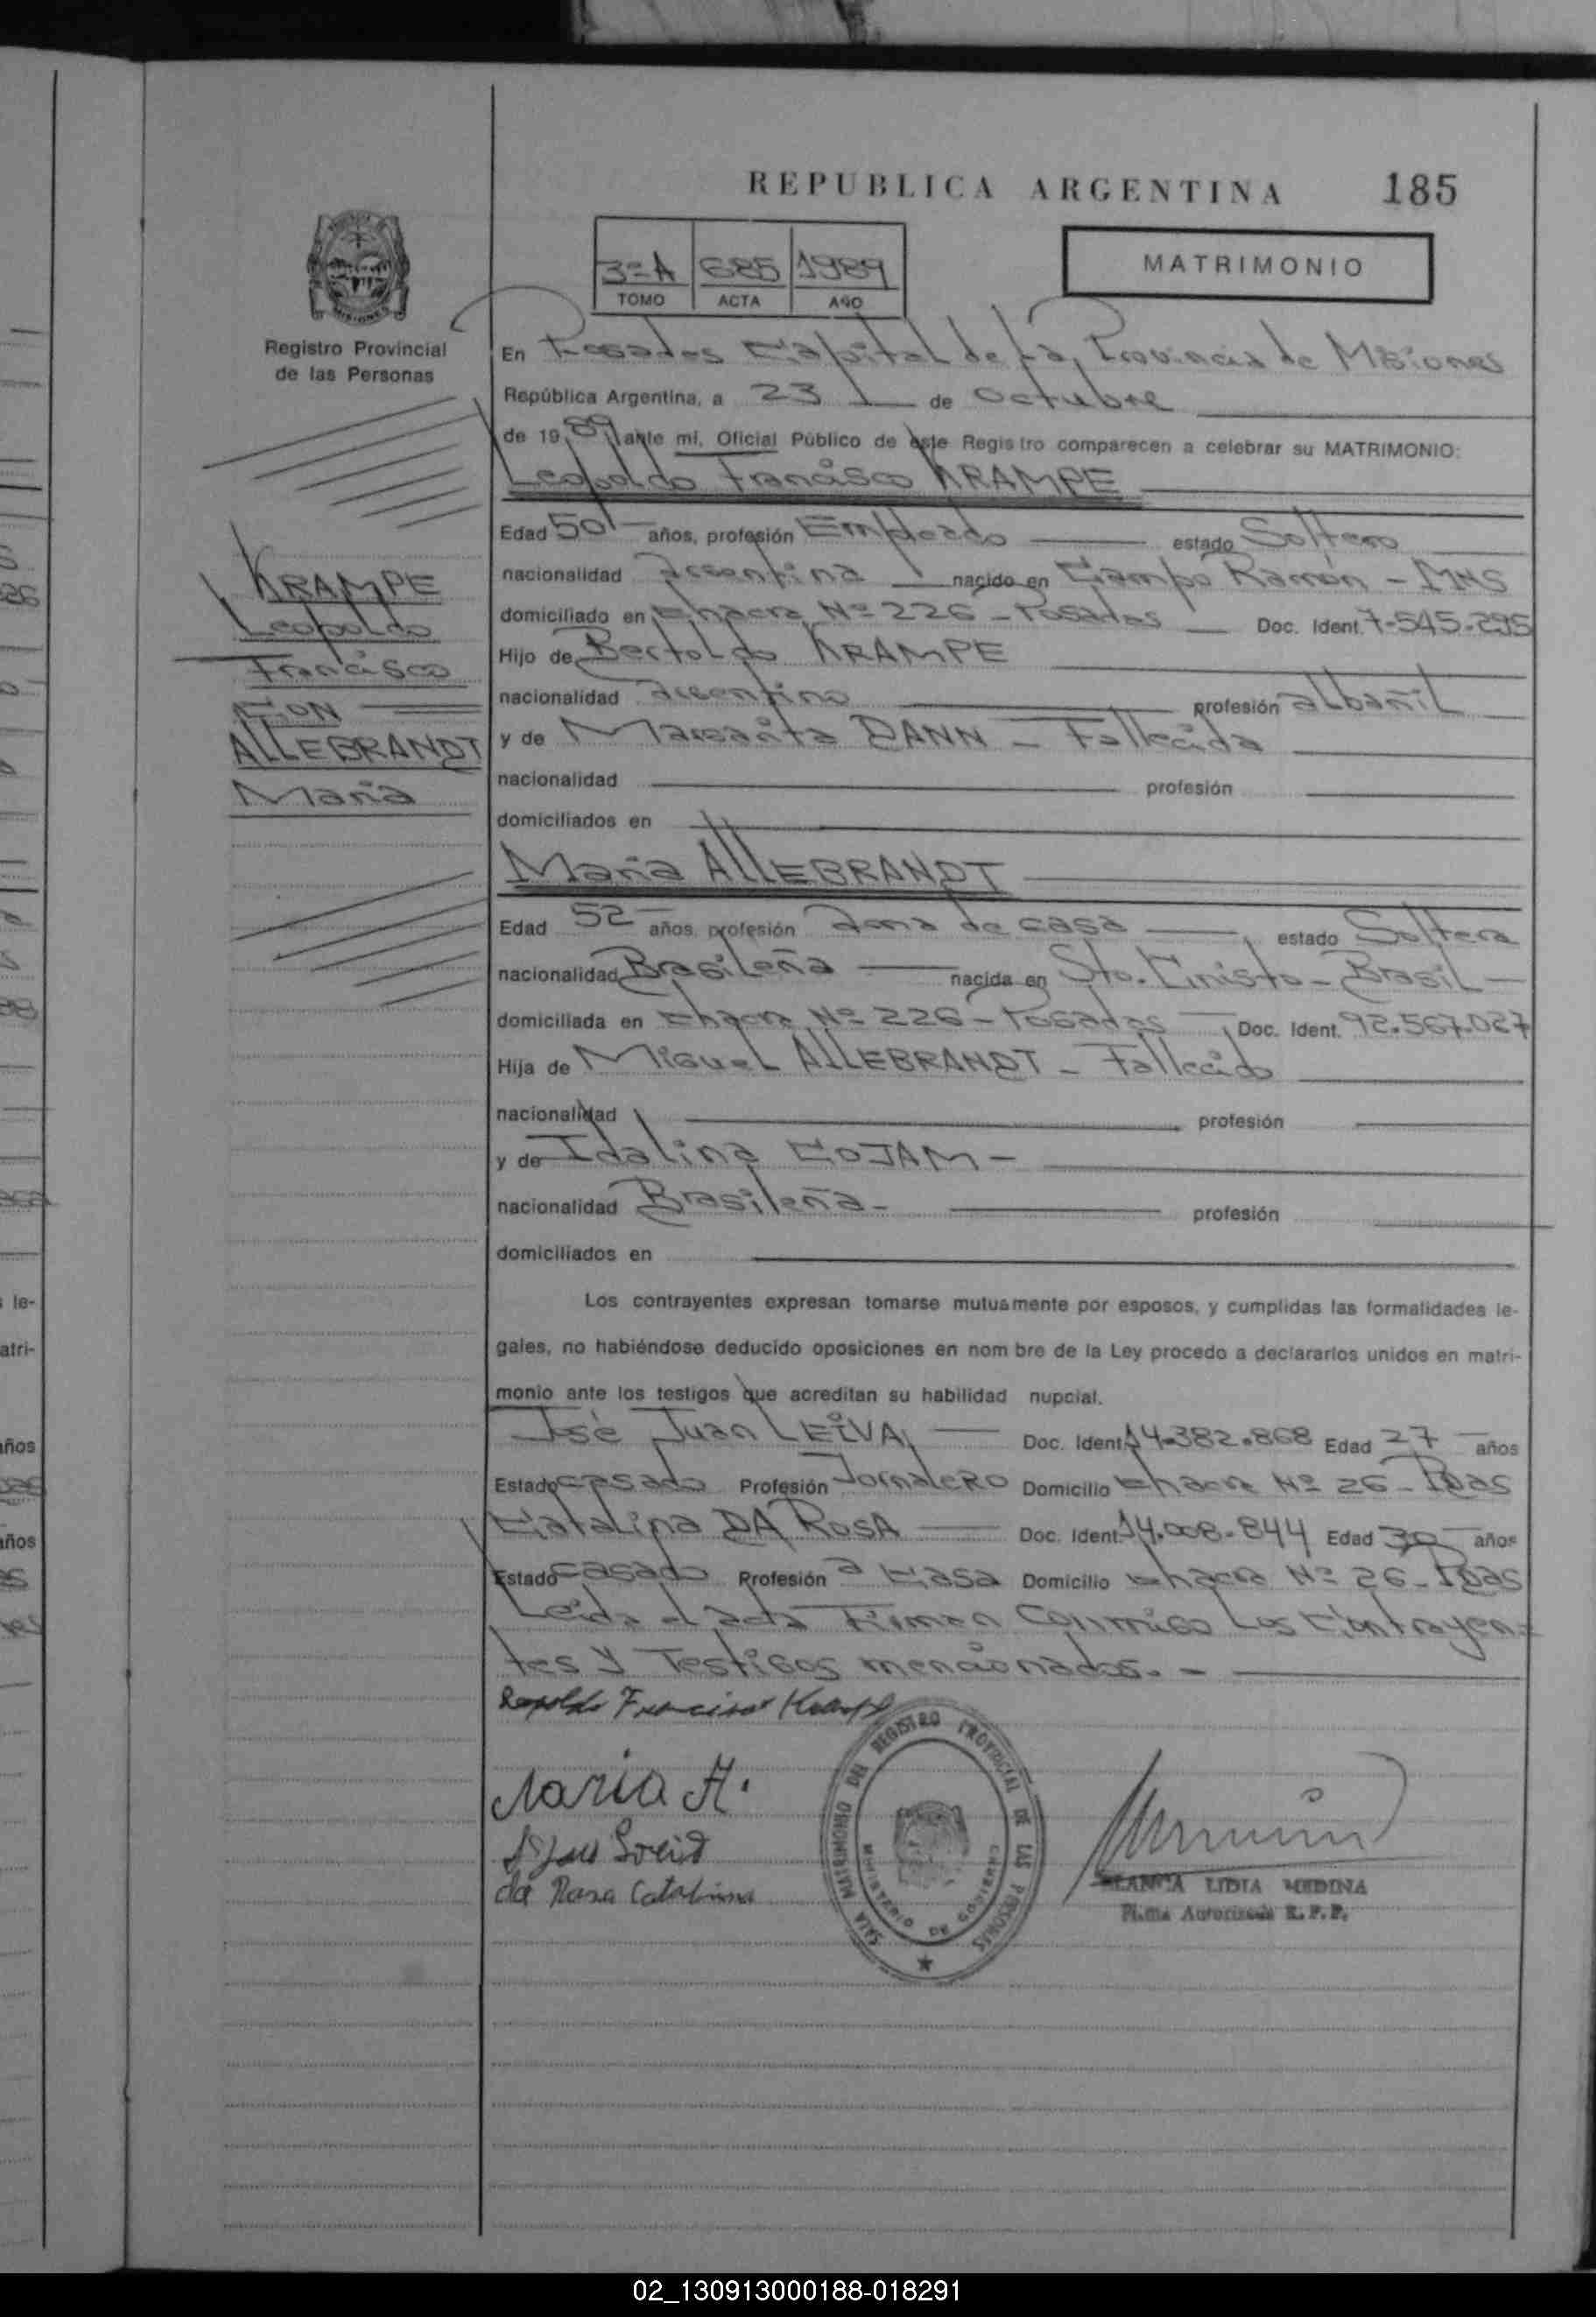 REPUBLICA ARGENTINA 185
3ºA 685 1989
TOMO ACTA AÑO
MATRIMONIO
MISIONES
Registro Provincial
de las Personas
En Posadas Capital de la Provincia de Misiones
República Argentina, a 23 de octubre
de 1989 ante mí, Oficial Público de este Registro comparecen a celebrar su MATRIMONIO:
Leopoldo Francisco KRAMPE
Edad 50 años, profesión Empleado estado Soltero
nacionalidad Argentina nacido en Campo Ramón - MNS
domiciliado en Chacra Nº 226 - Posadas Doc. Ident. 7.545.295
Hijo de Bertoldo KRAMPE
nacionalidad Argentino profesión albañil
y de Margarita DANN - Fallecida
nacionalidad profesión
domiciliados en
KRAMPE
Leopoldo
Francisco
CON
ALLEBRANDT
María
María ALLEBRANDT
Edad 52 años, profesión Ama de casa estado Soltera
nacionalidad Brasileña nacida en Sto. Cristo - Brasil
domiciliada en Chacra Nº 226 - Posadas Doc. Ident. 92.567.027
Hija de Miguel ALLEBRANDT - Fallecido
nacionalidad profesión
y de Idalina COJAM -
nacionalidad Brasileña - profesión
domiciliados en
Los contrayentes expresan tomarse mutuamente por esposos, y cumplidas las formalidades le-
gales, no habiéndose deducido oposiciones en nom bre de la Ley procedo a declararlos unidos en matri-
monio ante los testigos que acreditan su habilidad nupcial.
José Juan LEIVA Doc. Ident. 14.382.868 Edad 27 años
Estado casado Profesión Jornalero Domicilio Chacra Nº 26 - Pdas
Catalina DA ROSA Doc. Ident. 14.008.844 Edad 30 años
Estado casado Profesión a Casa Domicilio Chacra Nº 26 - Pdas
Leída el acta Firman conmigo Los Contrayen-
tes y Testigos mencionados. -
Leopoldo Francisco Krampe
María A.
da Rosa Catalina
SALA MATRIMONIO DEL REGISTRO PROVINCIAL DE LAS PERSONAS
MINISTERIO DE GOBIERNO
BLANCA LIDIA MEDINA
Firma Autorizada R. P. P.
02_130913000188-018291